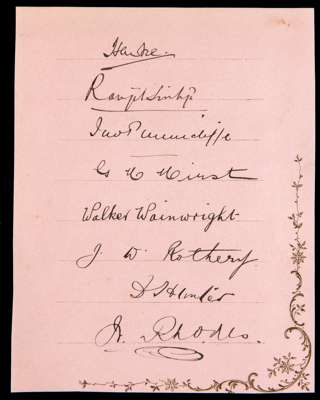 Hawke
Ranjitsinhji
Jno Tunnicliffe
G. H. Hirst
Walker Wainwright
J. W. Rothery
D Hunter
W. Rhodes.